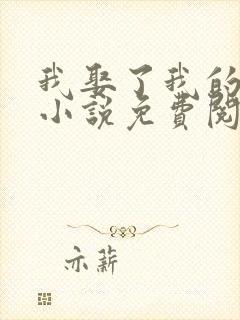 我娶了我的
小說免費閱
亦薪